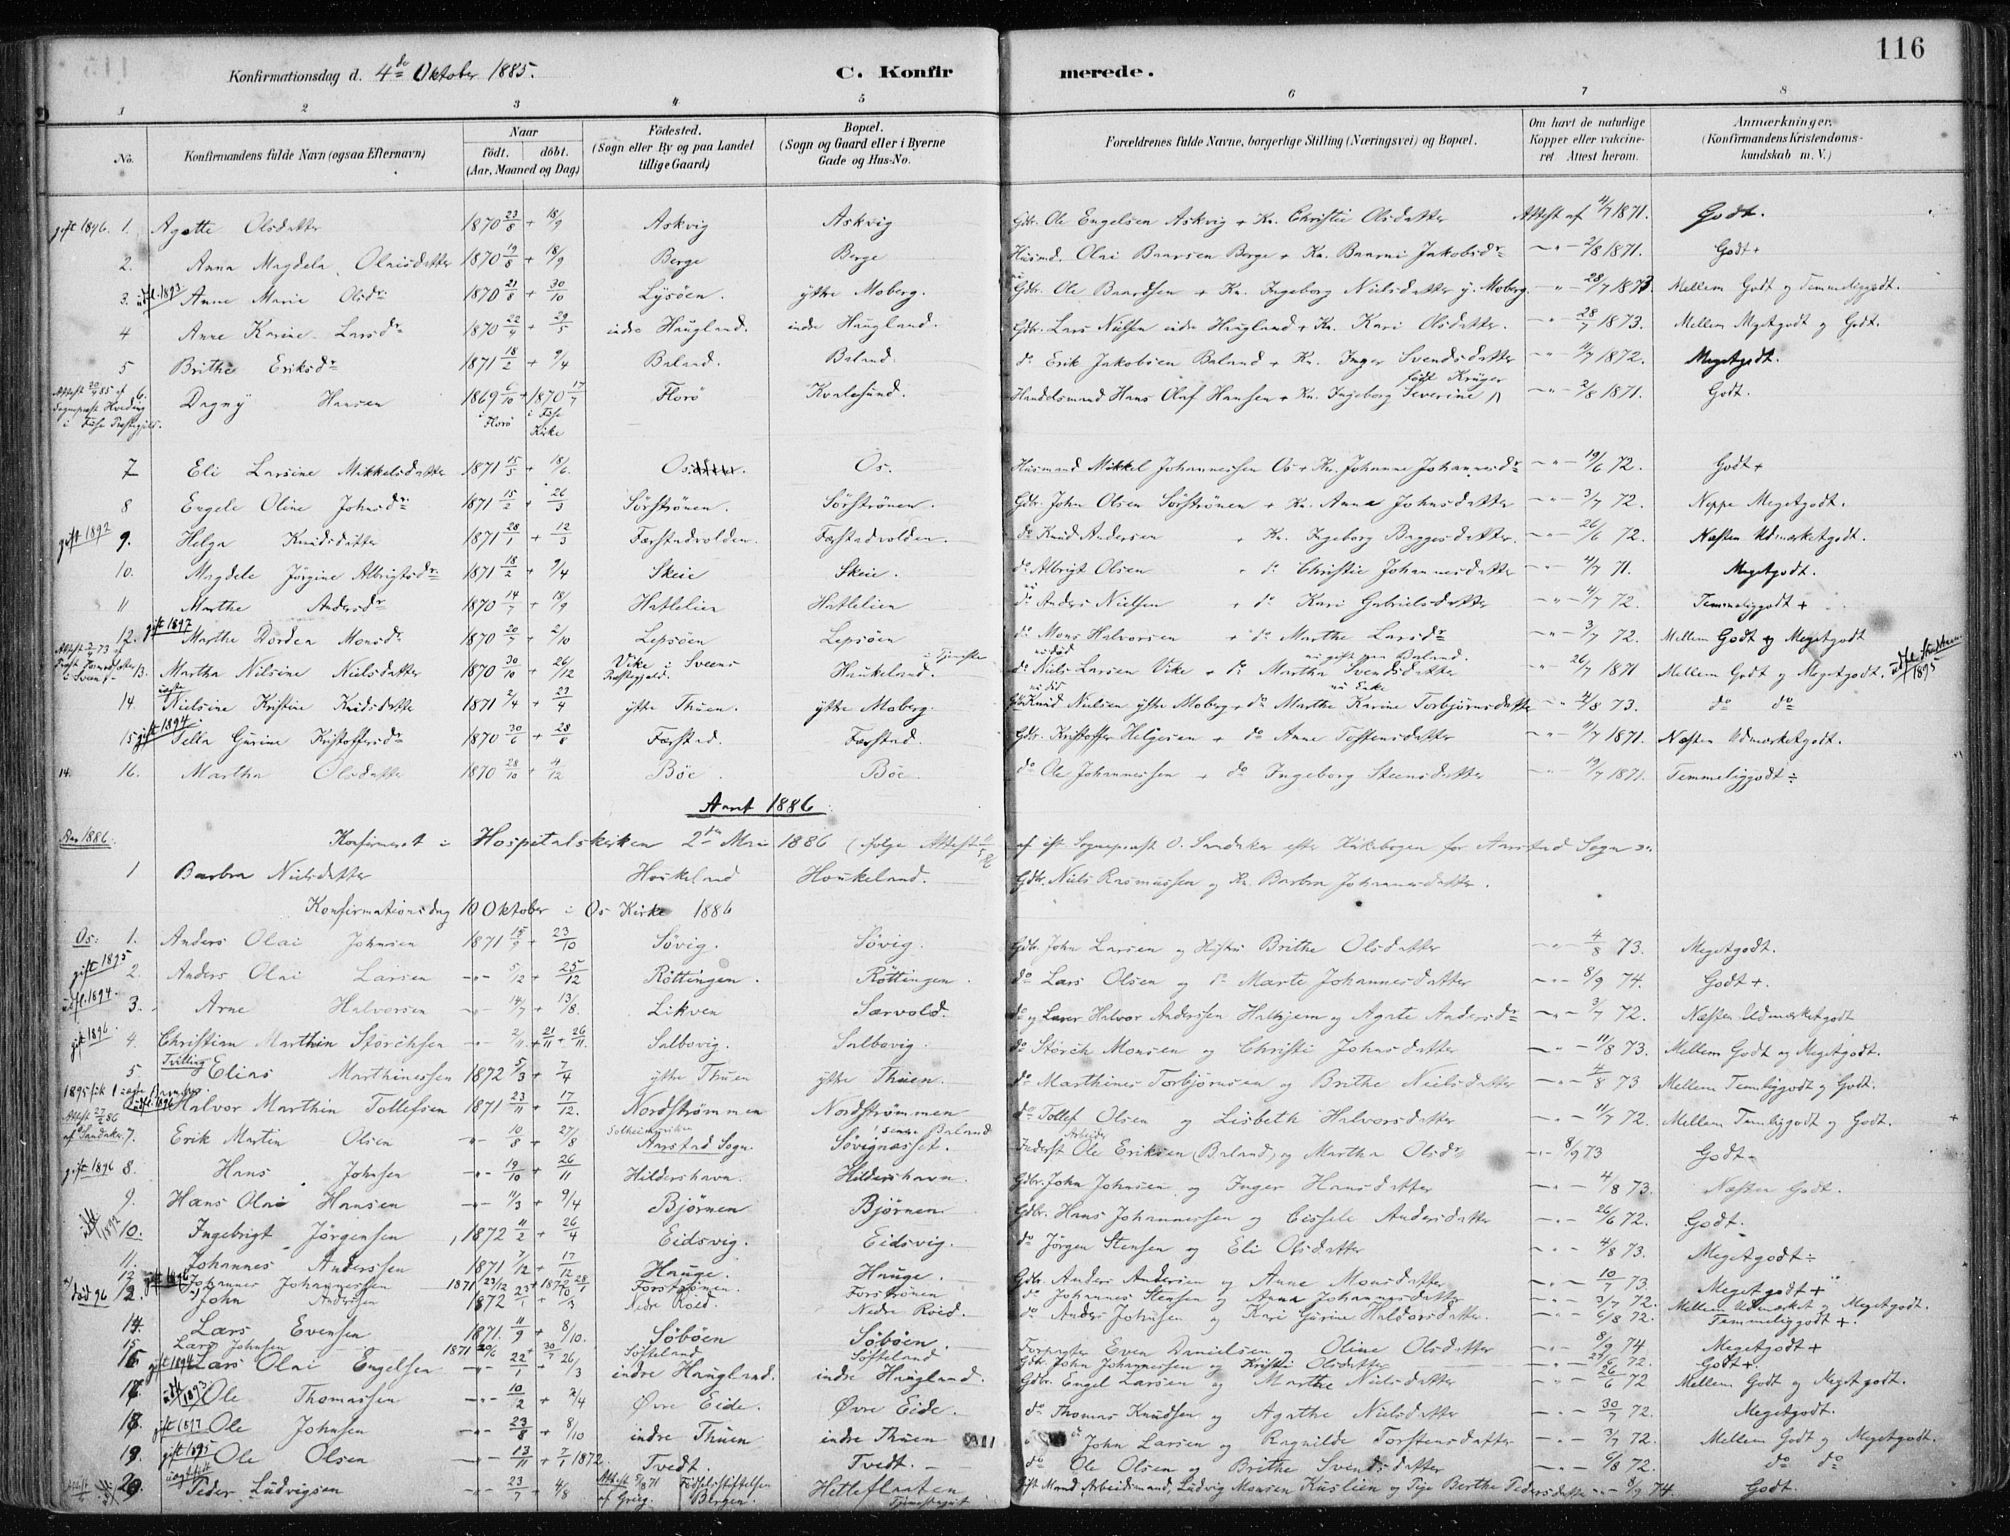 116
Konfirmationsdag d. 4de Oktober 1885. C. Konfirmerede.
1 2 3 4 5 6 7 8
No. Konfirmandens fulde Navn (ogsaa Efternavn) Naar födt. döbt. (Aar, Maaned og Dag) Födested. (Sogn eller By og paa Landet tillige Gaard) Bopæl. (Sogn og Gaard eller i Byerne Gade og Hus-No. Forældrenes fulde Navne, borgerlige Stilling (Næringsvei) og Bopæl. Om havt de naturlige Kopper eller vakcineret Attest herom. Anmærkninger. (Konfirmandens Kristendomskundskab m. V.)
gift 1896. 1. Agatte Olsdatter 1870 23/8 + 18/9 Askvig Askvig Gbr. Ole Engelsen Askvig + Kn. Christie Olsdatter Attest af 4/7 1871. Godt.
2. Anna Magdela Olaisdatter 1870 19/8 + 18/9 Berge Berge Husmd. Olai Baarsen Berge + Kn. Baarni Jakobsdr - " - 2/8 1871. Godt +
3. udfl. 1893 Anne Marie Olsdr 1870 21/8 + 30/10 Lysöen. ytre Moberg. Gbr. Ole Baardsen + Kn. Ingeborg Nielsdatter y. Moberg. - " - 28/7 1873. Mellem Godt og Temmeliggodt.
4 Anne Karine Larsdr 1870 22/4 + 29/5 indre Haugland. indre Haugland. Gbr. Lars Nielsen indre Haugland + Kn. Kari Olsdatter. - " - 28/7 1873. Mellem Megetgodt og Godt.
5 Brithe Eriksdr 1871 18/2 + 9/4 Baland. Baland. do Erik Jakobsen Baland + Kn. Inger Svendsdatter - " - 4/7 1872. Megetgodt.
Attest 20/4 85 af Sognepræst Hvoding i Fuse Præstegjeld. 6. Dagny Hansen 1869 6/10 + 1870 17/7 i Florö i Fuse Kirke Florö Kvalesund. Handelsmand Hans Olaf Hansen + Kn. Ingeborg Severine född Krüger - " - 2/8 1871. Godt.
7 Eli Larsine Mikkelsdatter 1871 15/5 + 18/6. Os. Os. Husmand Mikkel Johannessen Os + Kn. Johanne Johannesdr - " - 19/6 72. Godt +
8 Engele Oline Johnsdr 1871 15/2 + 26/3 Sörströnen. Sörströnen. Gbr. John Olsen Sörströnen + Kn. Anna Johnsdatter - " - 3/7 72. Neppe Megetgodt.
gift 1892 9. Helga Knudsdatter 1871 28/1 + 12/3 Færstadvolden. Færstadvolden. do Knud Andersen + Kn. Ingeborg Baggesdatter. - " - 26/6 72. Næsten Udmærketgodt.
10. Magdele Jörgine Albrigtsdr 1871 18/2 + 9/4 Skeie Skeie. do Albrigt Olsen " do Christie Johannesdatter - " - 4/7 71. Megetgodt.
11 Marthe Andersdr 1870 14/7 + 18/9 Hatlelien Hatlelien do Anders Nielsen + do Kari Gabrielsdatter - " - 4/7 72. Temmeliggodt +
12. gift 1897 Marthe Dorden Monsdr 1870 20/7 + 2/10 Lepsöen Lepsöen do Mons Halvorsen + do Marthe Larsdr - " - 3/7 72. Mellem Godt og Megetgodt
13. Martha Nilsine Nielsdatter 1870 30/10 + 26/12 Vike i Sveens Præstegjeld. Haukeland. i Tjeneste do Niels Larsen Vike + do Martha Svendsdatter nu gift paa Baland. - " - 26/7 1871 Mellem Godt og Megetgodt. udfl. 1895
14. Nielsine Kristine Knudsdatter 1871 2/4 + 23/4 ytre Thuen. ytre Moberg. Gbr. Knud Nielsen ytre Moberg + do Marthe Karine Torbjørnsdatter nu Enke - " - 4/8 73. do do
15 gift 1894 Sella Gurine Kristoffersdr 1870 30/6 + 28/8 Færstad. Færstad. Gbr. Kristoffer Helgesen + do Anne Tostensdatter - " - 11/7 1871. Næsten Udmærketgodt.
14. 16. Martha Olsdatter 1870 28/10 + 4/12 Böe Böe do Ole Johannessen + do Ingeborg Steensdatter - " - 19/7 1871. Temmeliggodt ÷
Aaret 1886
1886. Konfirmeret i Hospitalskirken 2den Mai 1886 (ifølge Attest af Sognepræst O. Sandaker efter Kirkebogen for Aarstad Sogn
1 Barbra Nielsdatter Haukeland Haukeland. Gbr. Niels Rasmussen og Kn. Barbra Johannesdatter.
Konfirmationsdag 10 Oktober i Os Kirke 1886
Os: 1. Anders Olai Johnsen 1871 15/9 + 23/10 Sövig. Sövig. Gbr. John Larsen og Hustru Brithe Olsdatter - " - 4/8 73. Megetgodt.
gift 1895 2. Anders Olai Larsen - " - 5/12 + 25/12 Röttingen. Röttingen. do Lars Olsen og do Marte Johannesdatter - " - 8/9 74. Godt +.
udfl. 1894. 3. Arne Halvorsen - " - 14/7 + 13/8. Likven Særvold. do og Lærer Halvor Anderssen Halhjem og Agate Andersdr - " - 3/7 72. Næsten Udmærketgodt
gift 1896. 4. Christian Marthin Störchsen - " - 2/11 + 21/11 + 26/11. Salbovig. Salbovig. do Störch Monsen og Christi Johnsdatter - " - 11/8 73. Mellem Godt og Megetgodt.
5. Tvilling Elias Marthinessen 1872 5/3 + 7/4 ytre Thuen ytre Thuen. do Marthines Torbjörnsen og Brithe Nielsdatter - " - 4/8 73 Mellem Temliggodt og Godt.
udfl. 1896 Halvor Marthin Tollefsen 1871 23/11 + 17/12. Nordströmmen Nordströmmen do Tollef Olsen og Lisbeth Halvorsdatter - " - 11/7 72. Mellem Temliggodt og Godt.
Attest 27/4 86 af Sandaker. 7. Erik Martin Olsen - " - 10/8 + 27/8 Solheimsviken Aarstad Sogn. Søvignæsset. senere Baland Inderst Arbeider Ole Eriksen (Baland) og Martha Olsdr - " - 8/9 73 Godt -
gift 1896 8. Hans Johnsen - " - 19/10 + 26/11 Hildershavn. Hildershavn. Gbr. John Johnsen og Inger Hansdatter - " - 4/8 73. Næsten Godt.
9. Hans Olai Hansen - " - 11/3 + 9/4 Bjørnen Bjørnen. Gbr. Hans Johannessen og Cissele Andersdatter - " - 26/6 72. Godt.
1892 10. Ingebrigt Jörgensen 1872 11/2 + 26/4 Eidsvig. Eidsvig. do Jørgen Stensen og Eli Olsdatter - " - 4/8 73. Megetgodt ÷
11. Johannes Anderssen 1871 7/12 + 17/12 Hauge. Hauge. Gbr. Anders Andersen og Anne Monsdatter - " - 10/7 73. Megetgodt +
12 gift 1896 Johannes Johannessen 1871 23/12 + 1872 28/1 Forströnen. Forströnen do Johannes Stensen og Anna Johannesdatter - " - 3/7 72. Mellem Udmærket og Megetgodt.
död 96 John Andersen 1872 23/1 + 10/3 Nedre Röed. Nedre Röed. do Anders Johnsen og Kari Gurine Haldorsdatter. - " - 6/8 72. Temmeliggodt +.
14. Lars Evensen 1871. 11/9 + 8/10. Söböen Söböen. Forpagter Even Danielsen og Oline Olsdatter - " - 8/9 74 Megetgodt +
15 Lars Johnsen 1871 20/6 + 30/7 Söfteland Söfteland Gbr. John Johannessen og Kristi Olsdatter - " - 72. Godt +.
16 gift 1894 Lars Olai Engelsen - " - 22/1 + 26/3 indre Haugland. indre Haugland. Gbr. Engel Larsen og Marthe Nielsdatter - " - 26/6 72 Mellem Godt og Megetgodt.
17 1893 Ole Thomassen - " - 10/2 + 2/4 Øvre Eide. Øvre Eide. do Thomas Knudsen og Agathe Nielsdatter - " - 30/7 72. Megetgodt.
18. gift 1897 Ole Johnsen - " - 23/8 + 8/10 indre Thuen indre Thuen do John Larsen og Ragnilde Torstensdatter - " - 3/7 72. Mellem Godt og Megetgodt.
19. gift 1895 Ole Olsen - " - 13/11 + 7/1 1872. Tvedt. Tvedt. do Ole Olsen og Brithe Svendsdatter - " - 6/8 72. do do
20 Peder Ludvigsen - " - 23/7 + 4/8 Attest 5/8 71 af Grieg. Födselsstiftelsen Bergen. Hetleflaaten Tjenestegut Gift Mand Arbeidsmand, Ludvig Monsen Kuslien og Pige Berthe Pedersdatter - " - 8/9 74. Godt.